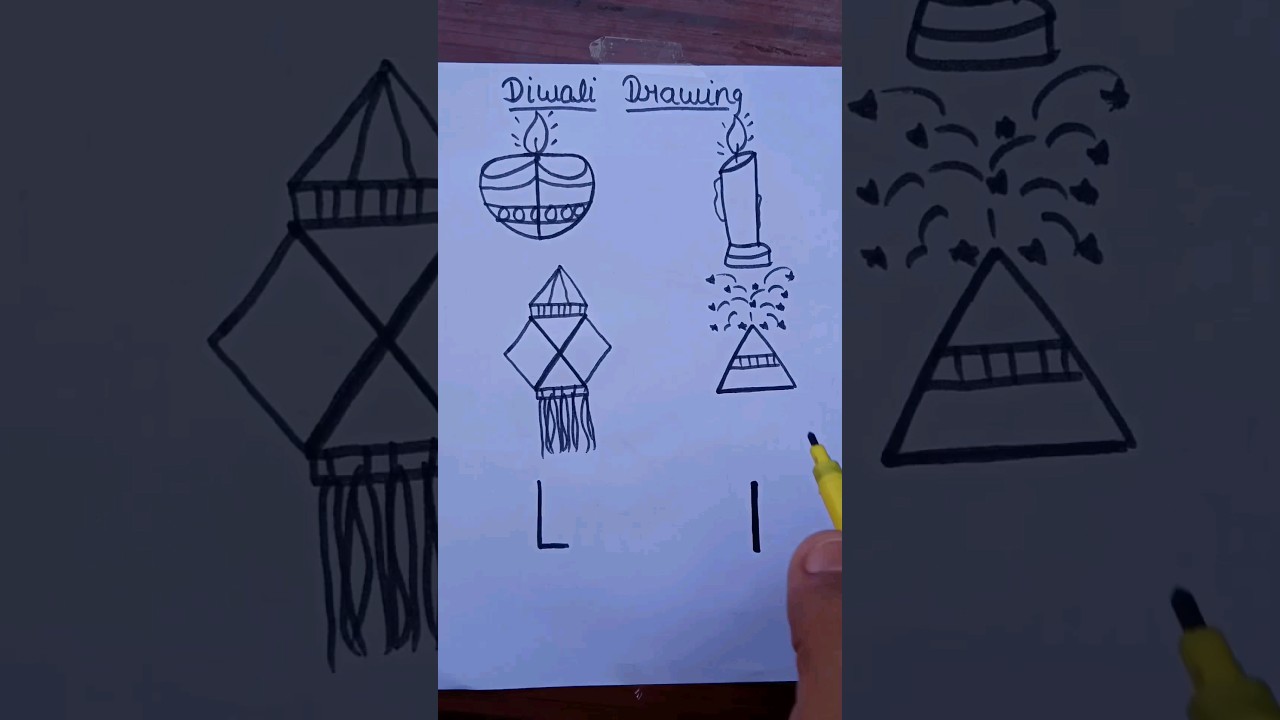 Diwali Drawing
L I